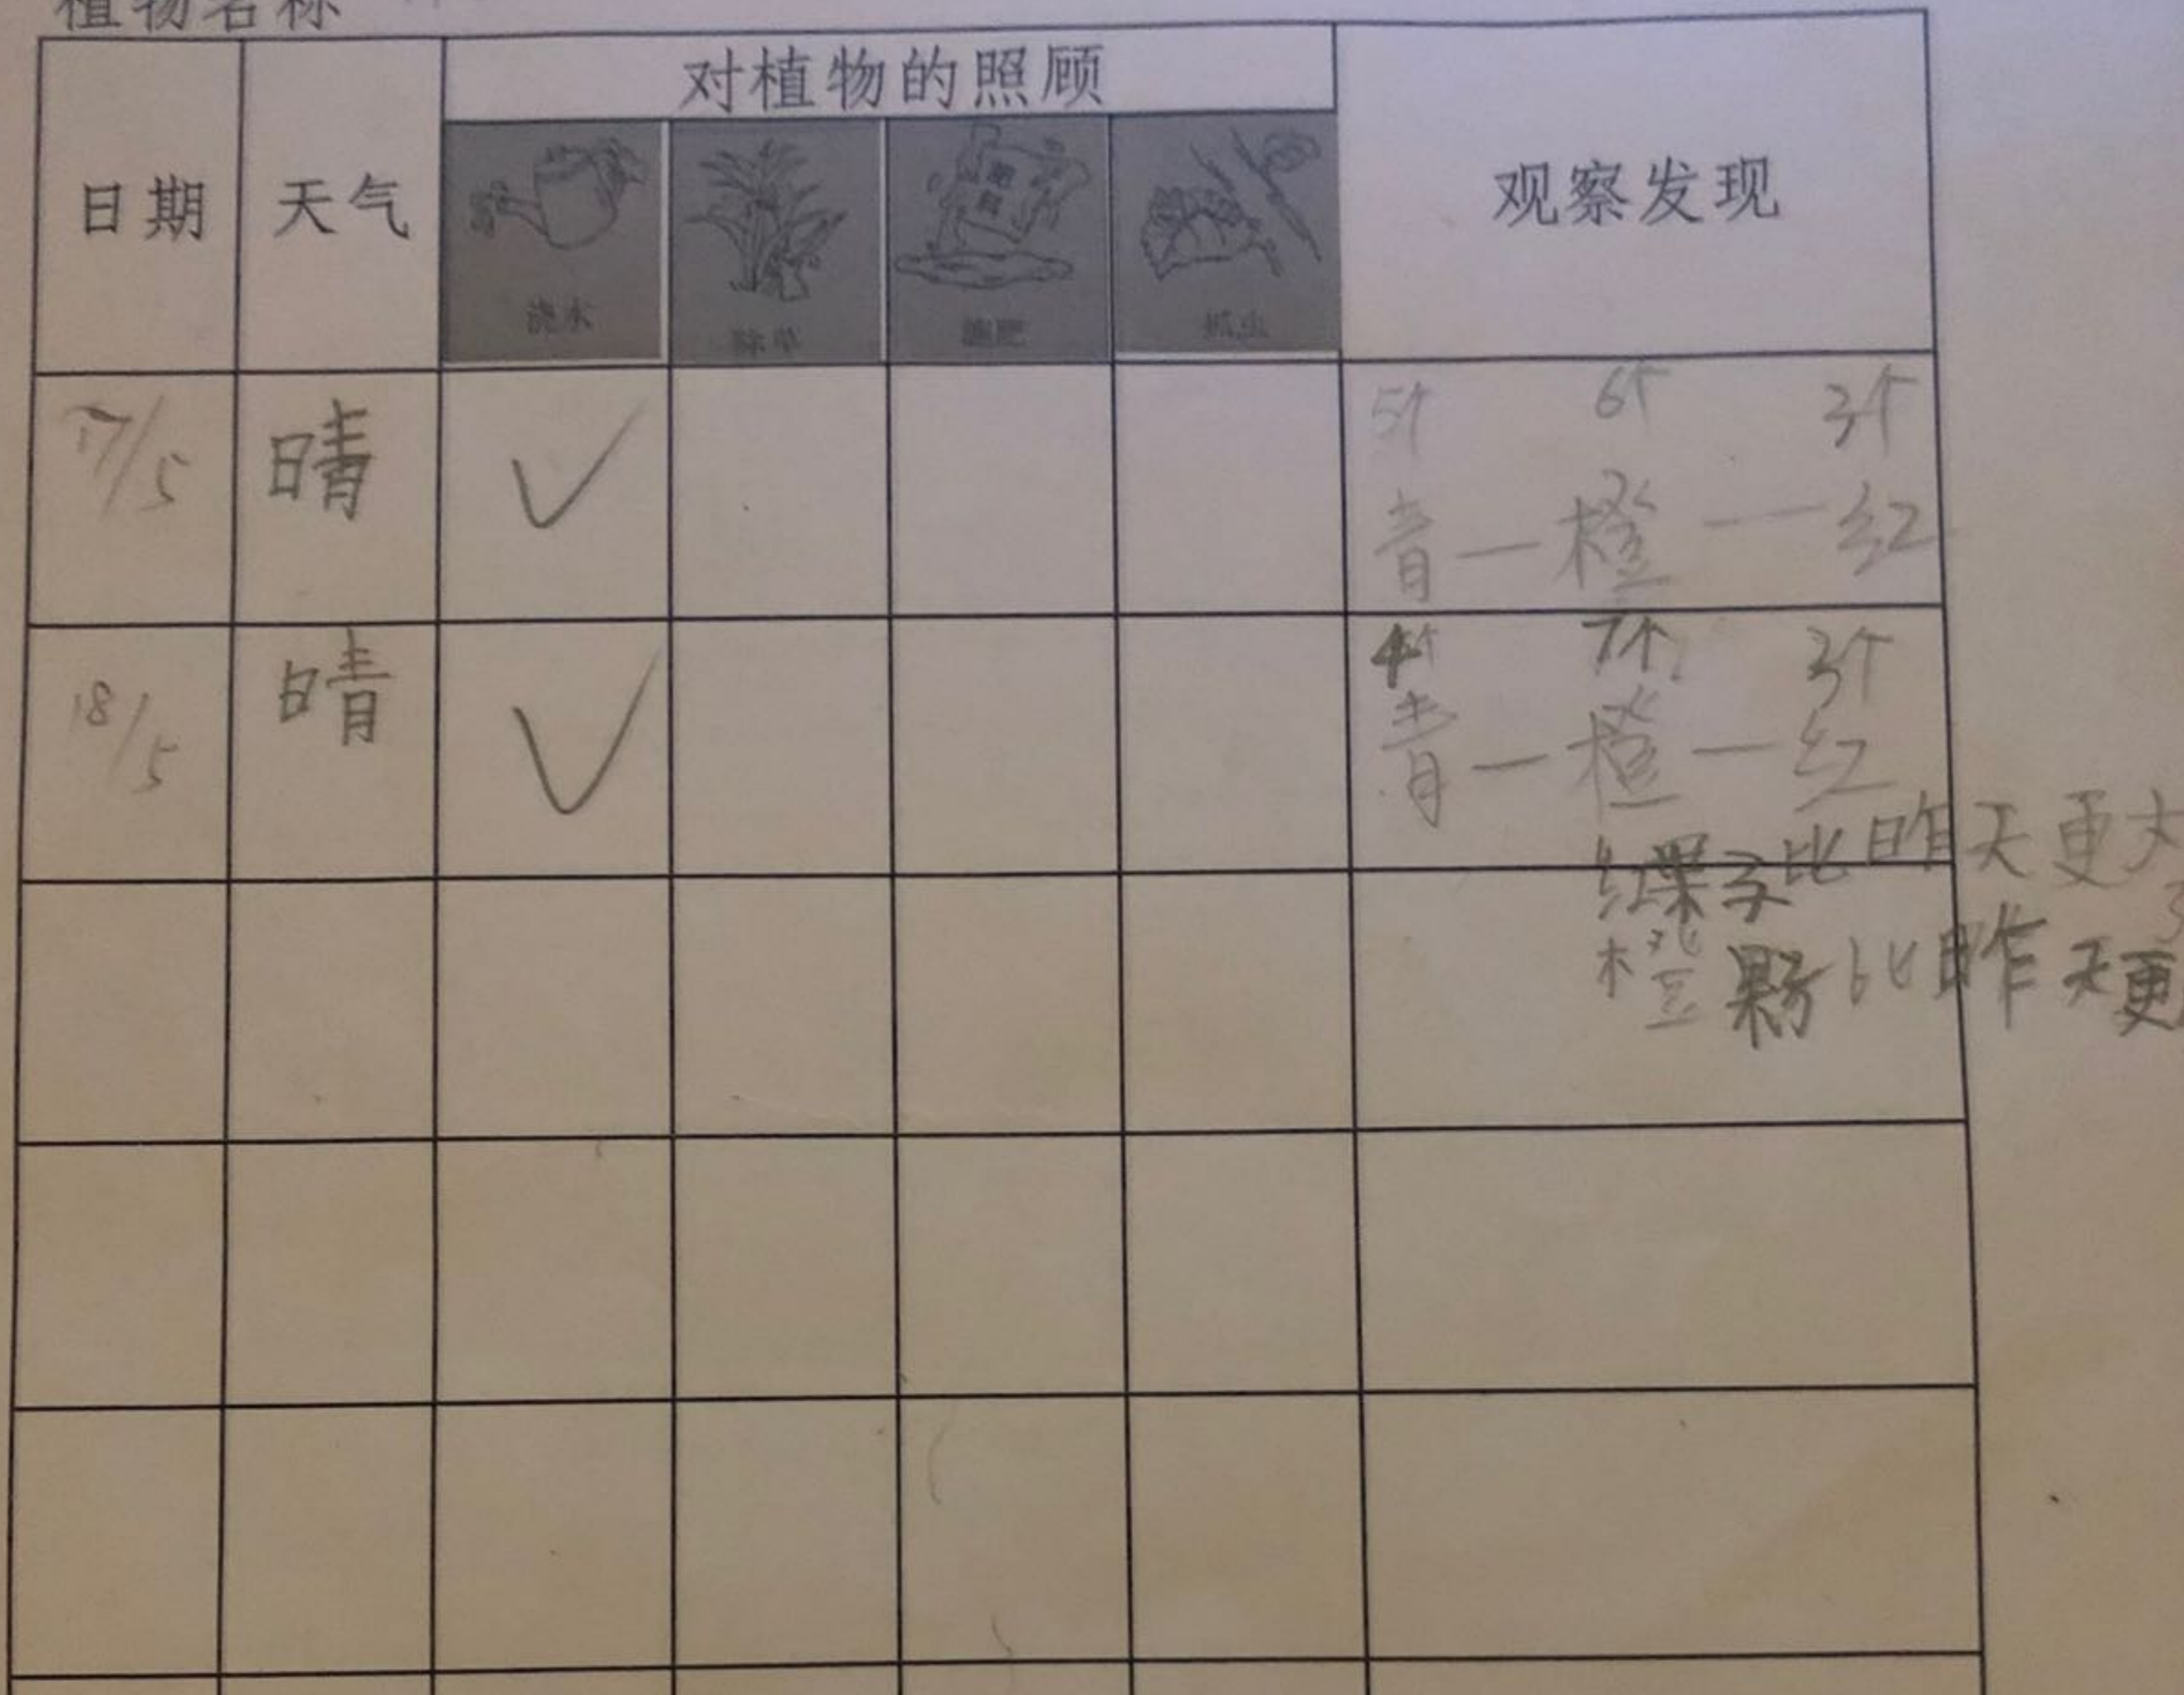 植物名称
对植物的照顾
日期 天气 观察发现
浇水 除草 施肥 抓虫
17/5 晴 ✓ 5个 6个 3个
青—橙—红
18/5 晴 ✓ 4个 7个 3个
青—橙—红
红果子比昨天更大
了
橙果子比昨天更